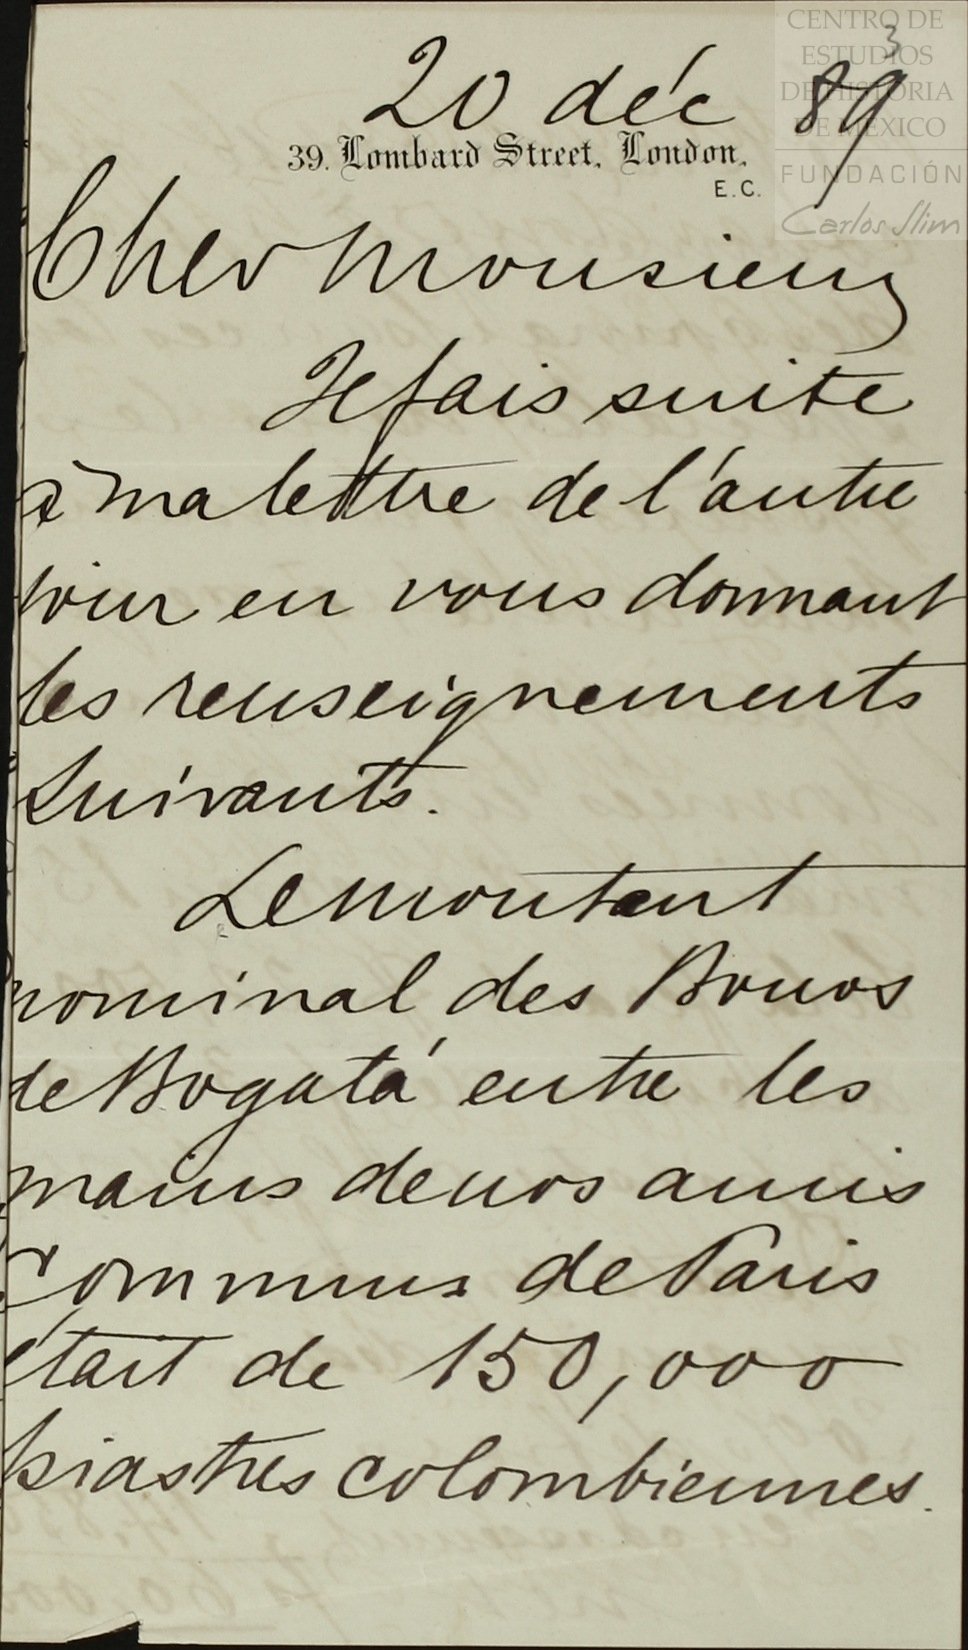 CENTRO DE
ESTUDIOS
DE HISTORIA
DE MÉXICO
FUNDACIÓN
Carlos Slim
3
20 déc 89
39. Lombard Street, London,
E.C.
Cher Monsieur
Je fais suite
à ma lettre de l'autre
jour en vous donnant
les renseignements
suivants.
Le montant
nominal des Bonos
de Bogatá entre les
mains de nos amis
communs de Paris
était de 150,000
piastres colombiennes.